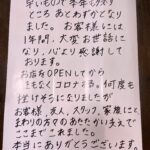 早いもので今年も残す
ところ あとわずかとなり
ました。お客様には
1年間、大変お世話に
なり、心より感謝して
おります。
お店をOPENしてから
まもなくコロナ禍。何度も
挫けそうになりましたが
お客様、友人、スタッフ、家族にと
まわりの方々のあたたかい支えで
ここまでこれました。
本当にありがとうございます。